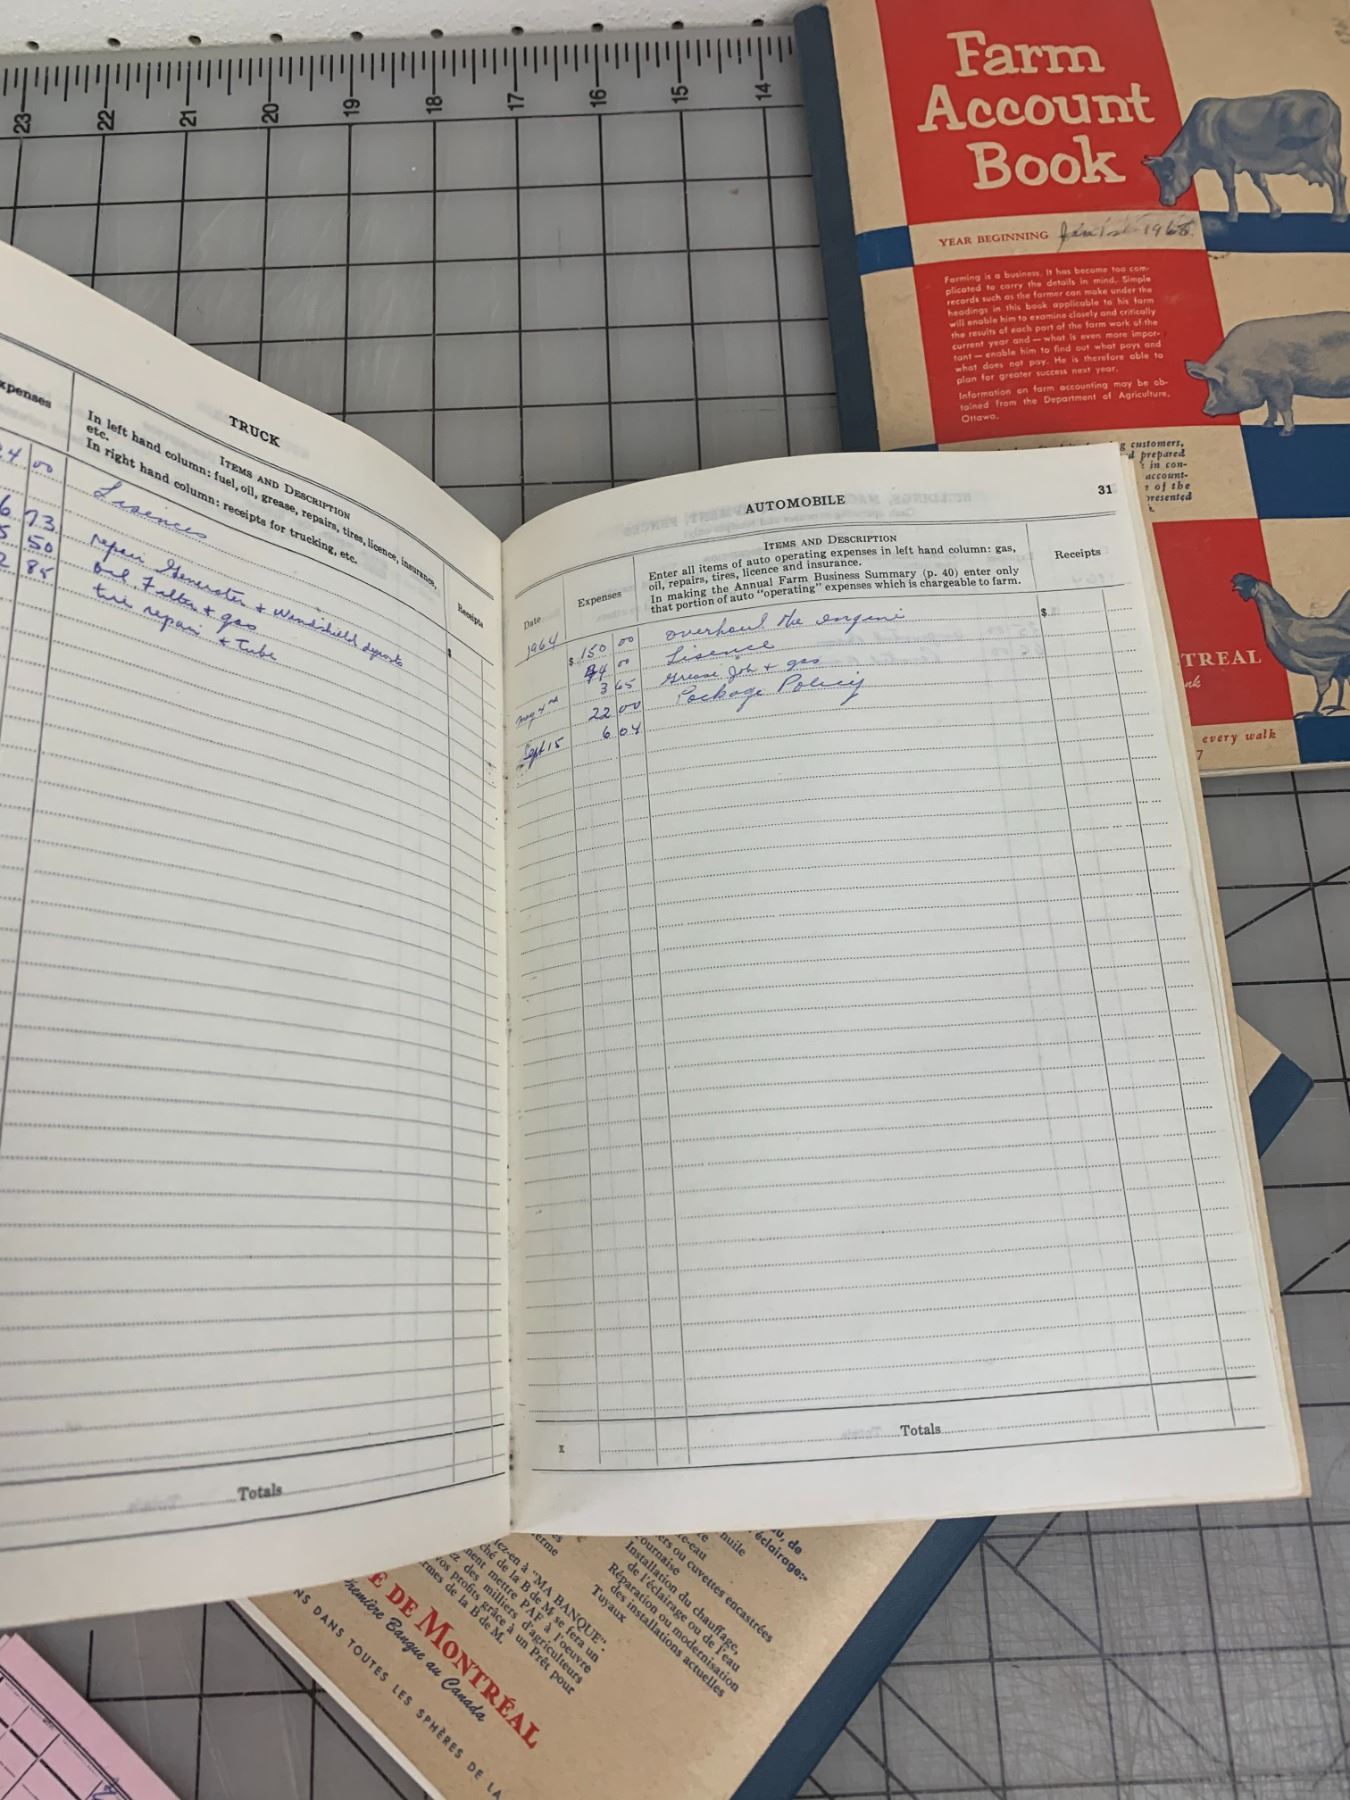 23 22 21 20 19 18 17 16 15 14
Farm
Account
Book
YEAR BEGINNING Jan 1st 1968
Farming is a business. It has become too com-
plicated to carry the details in mind. Simple
records such as the farmer can make under the
headings in this book applicable to his farm
will enable him to examine closely and critically
the results of each part of the farm work of the
current year and — what is even more impor-
tant — enable him to find out what pays and
what does not pay. He is therefore able to
plan for greater success next year.
Information on farm accounting may be ob-
tained from the Department of Agriculture,
Ottawa.
customers,
prepared
in con-
account-
of the
TREAL
every walk
7
xpenses
TRUCK
ITEMS AND DESCRIPTION
In left hand column: fuel, oil, grease, repairs, tires, licence, insurance,
etc.
In right hand column: receipts for trucking, etc.
Receipts
$
4 00 Lisences
6 73 repair Generator & Windshield
5 50 Oil Filter & gas
2 85 tire repair & tube
Totals
AUTOMOBILE
31
Date
Expenses
ITEMS AND DESCRIPTION
Enter all items of auto operating expenses in left hand column: gas,
oil, repairs, tires, licence and insurance.
In making the Annual Farm Business Summary (p. 40) enter only
that portion of auto "operating" expenses which is chargeable to farm.
Receipts
1964 $ 150 00 overhaul the engine $
00 Lisence
3 65 Grease job & gas
May 4 22 00 Package Policy
Sept 15 6 04
x Totals
éclairage:-
ou cuvettes encastrées
Installation du chauffage,
de l'éclairage ou de l'eau
Réparation ou modernisation
des installations actuelles
Tuyaux
"MA BANQUE".
de la B de M se fera un
mettre PAF à l'oeuvre
des milliers d'agriculteurs
profits grâce à un Prêt pour
de la B de M.
E DE MONTRÉAL
Première Banque au Canada
NS DANS TOUTES LES SPHÈRES DE LA